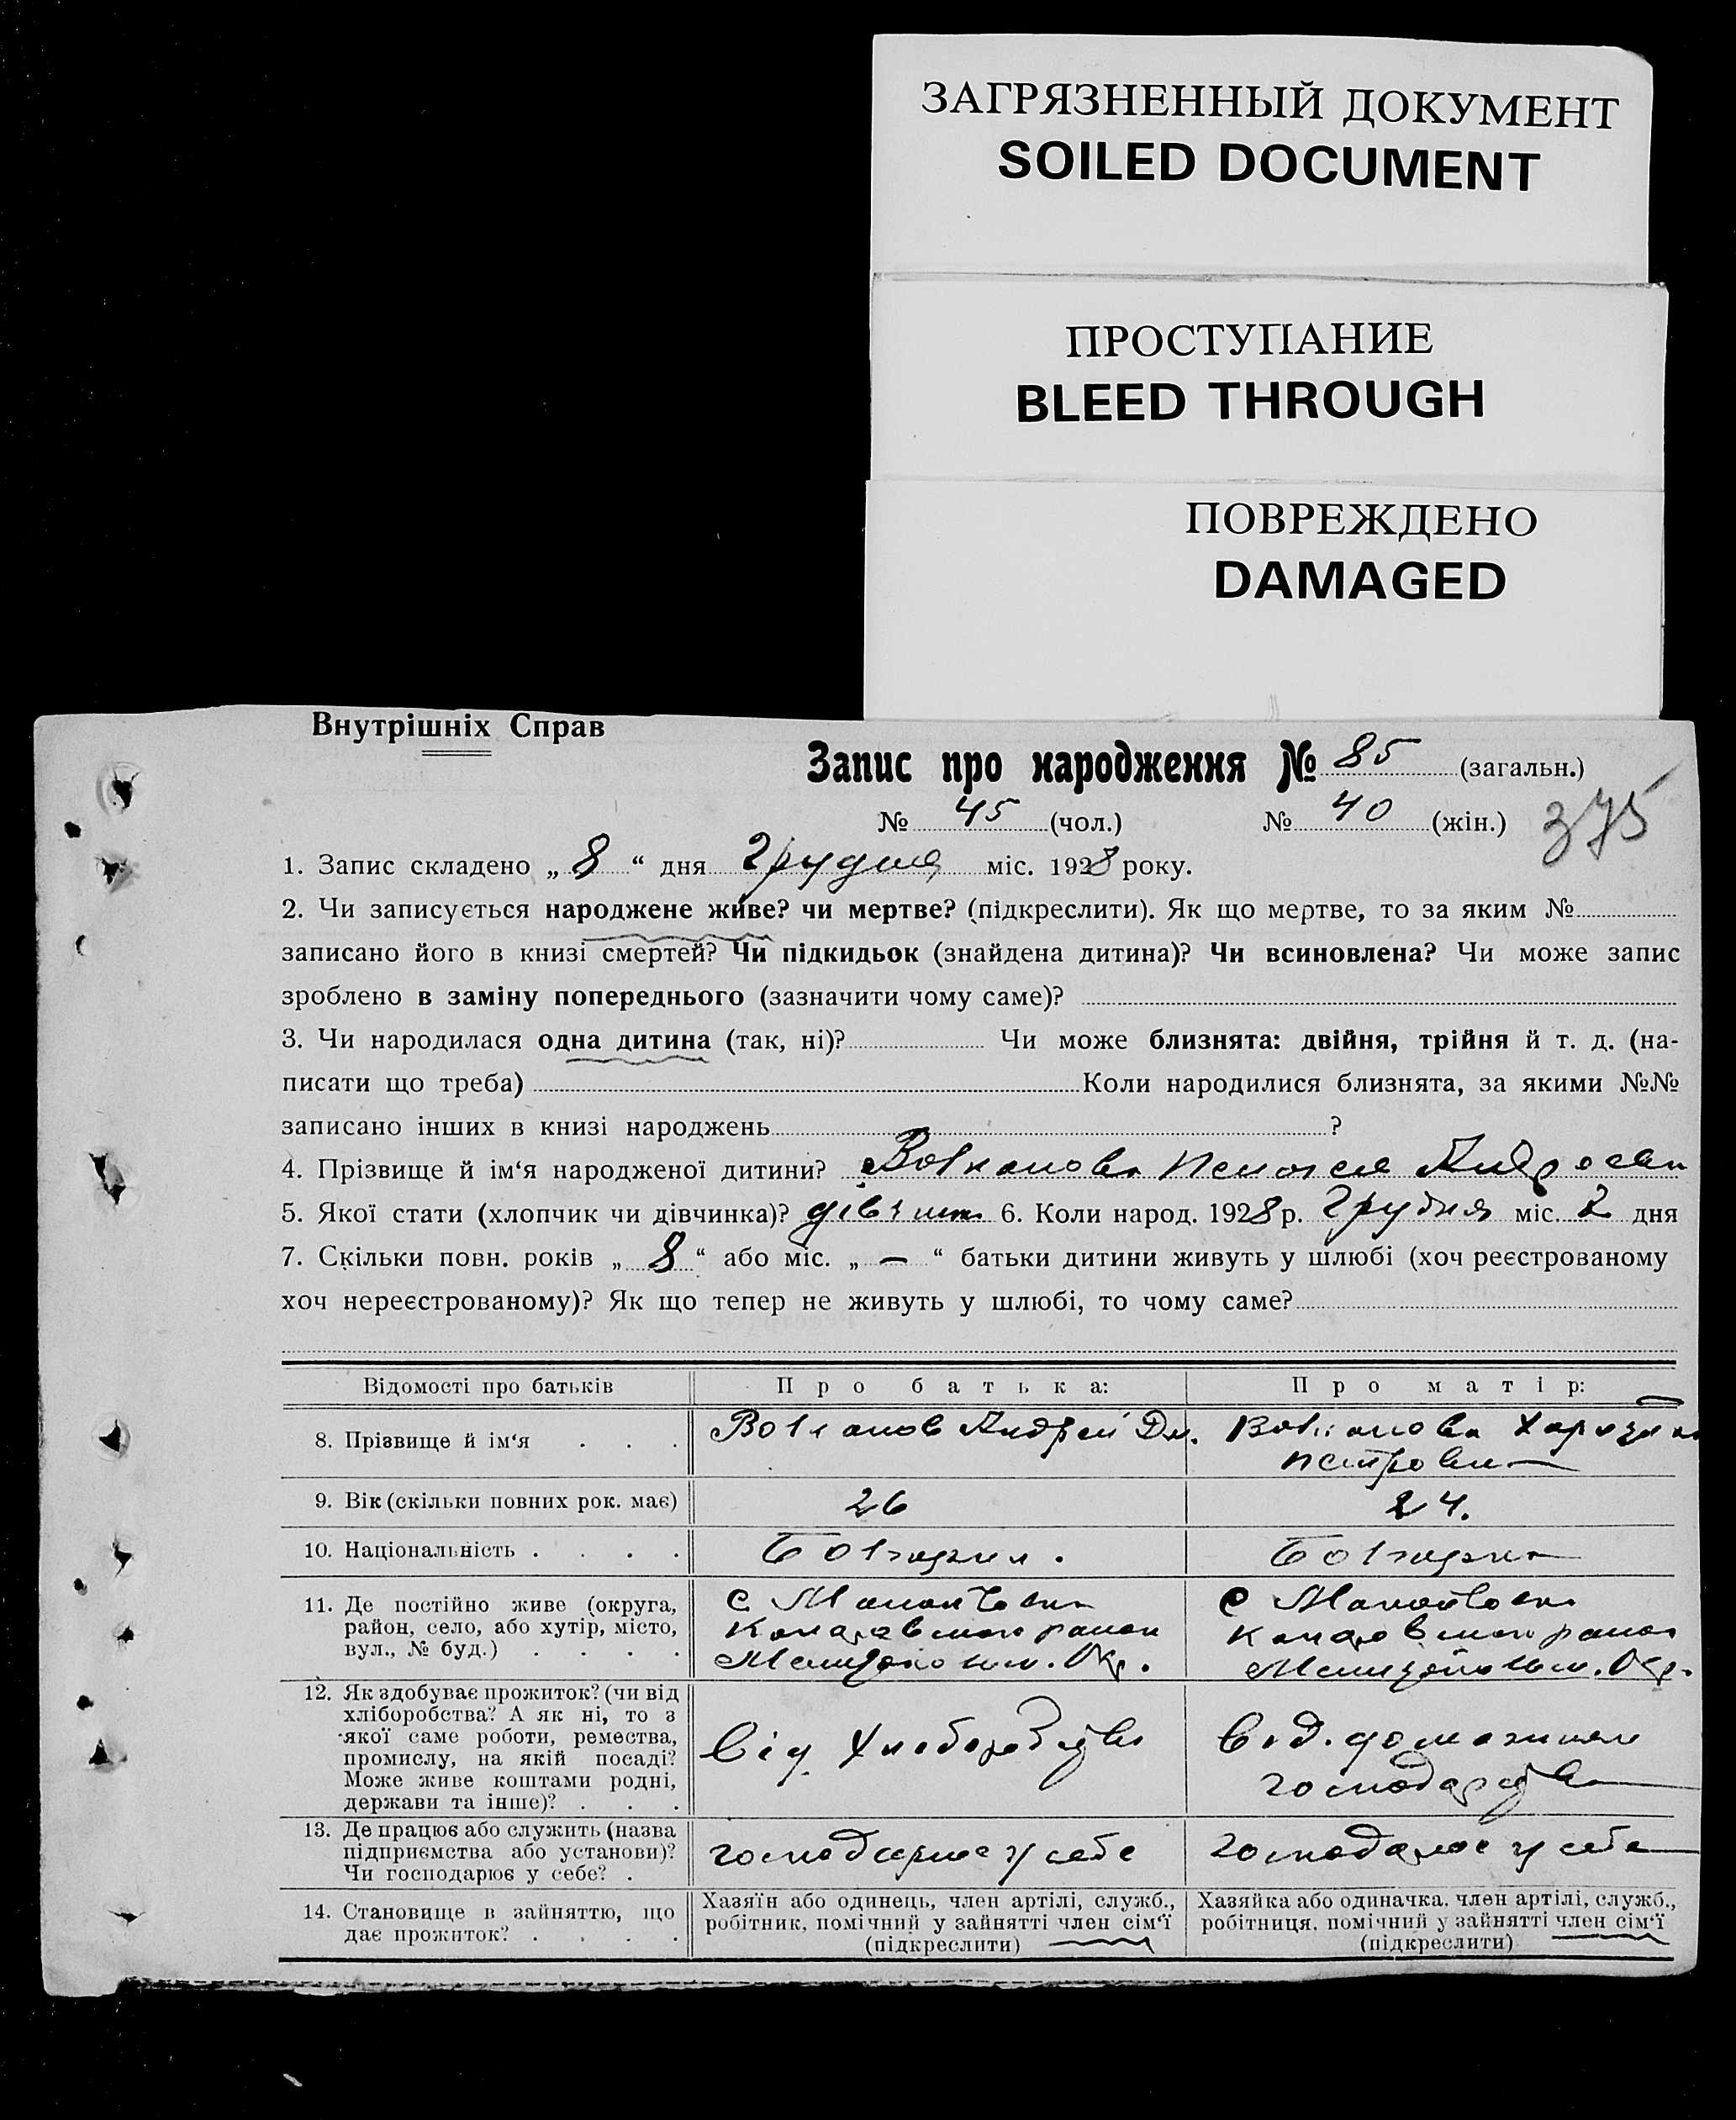 ЗАГРЯЗНЕННЫЙ ДОКУМЕНТ
SOILED DOCUMENT
ПРОСТУПАНИЕ
BLEED THROUGH
ПОВРЕЖДЕНО
DAMAGED
Внутрішніх Справ
Запис про народження № 85 (загальн.)
№ 45 (чол.) № 40 (жін.) 375
1. Запис складено „ 8 “ дня Грудня міс. 1928 року.
2. Чи записується народжене живе? чи мертве? (підкреслити). Як що мертве, то за яким №
записано його в книзі смертей? Чи підкидьок (знайдена дитина)? Чи всиновлена? Чи може запис
зроблено в заміну попереднього (зазначити чому саме)?
3. Чи народилася одна дитина (так, ні)? Чи може близнята: двійня, трійня й т. д. (на-
писати що треба) Коли народилися близнята, за якими №№
записано інших в книзі народжень ?
4. Прізвище й ім‘я народженої дитини? Волканова
5. Якої стати (хлопчик чи дівчинка)? дівчинка 6. Коли народ. 1928 р. Грудня міс. 2 дня
7. Скільки повн. років „ 8 “ або міс. „ — “ батьки дитини живуть у шлюбі (хоч реєстрованому
хоч нереєстрованому)? Як що тепер не живуть у шлюбі, то чому саме?
Відомості про батьків Про батька: Про матір:
8. Прізвище й ім‘я Волканов Андрей Дм. Волканова
Петровна
9. Вік (скільки повних рок. має) 26 24.
10. Національність Болгарин. Болгарка
11. Де постійно живе (округа, район, село, або хутір, місто, вул., № буд.) с
Мелітопольск. Окр. Мелітопольск. Окр.
12. Як здобуває прожиток? (чи від хліборобства? А як ні, то з якої саме роботи, ремества, промислу, на якій посаді? Може живе коштами родні, держави та інше)? Від Хліборобства Від домашнього
господарства
13. Де працює або служить (назва підприємства або установи)? Чи господарює у себе? господарює у себе господарює у себе
14. Становище в зайняттю, що дає прожиток? Хазяїн або одинець, член артілі, служб., робітник, помічний у зайнятті член сім‘ї (підкреслити) Хазяйка або одиначка, член артілі, служб., робітниця, помічний у зайнятті член сім‘ї (підкреслити)